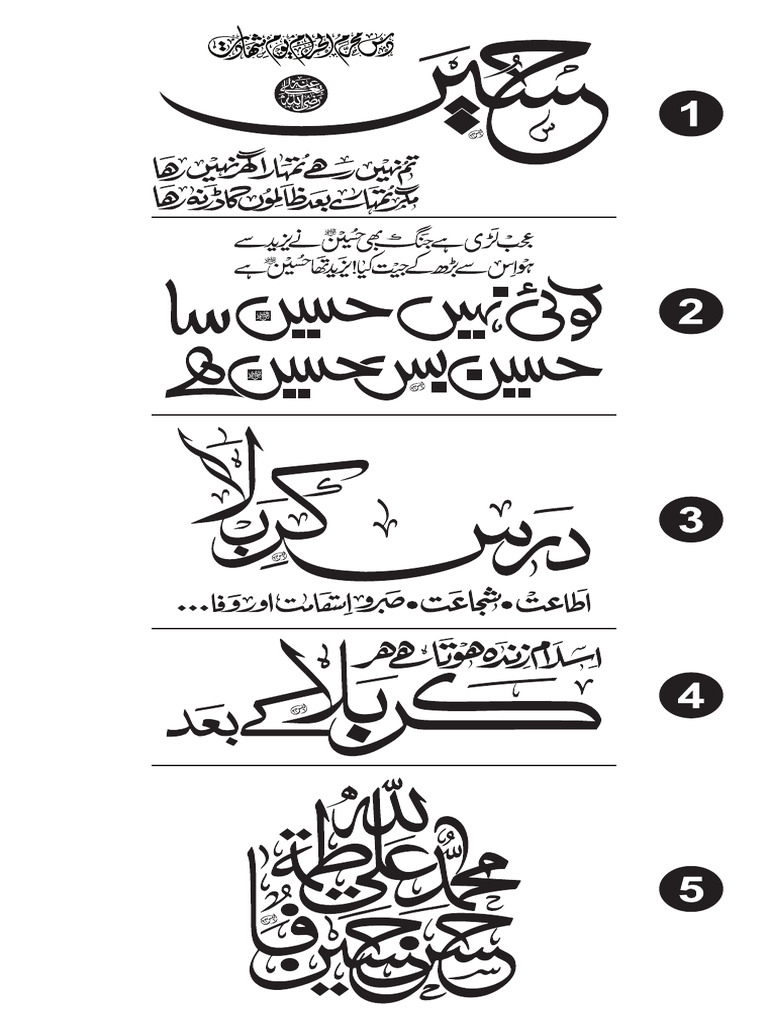 دس محرم الحرام یوم شھادت
حسین رضی اللہ تعالیٰ عنہ
1
تم نہیں رھے تمہارا گھر نہیں رھا
مگر تمہارے بعد ظالموں کا ڈر نہ رھا
عجب لڑی ہے جنگ بھی حسینؓ نے یزید سے
ہو اس سے بڑھ کے جیت کیا! یزید تھا حسینؓ ہے
کوئی نہیں حسینؓ سا
2
حسین بس حسینؓ ھے
درس کربلا
3
اطاعت • شجاعت • صبر و استقامت اور وفا...
اسلام زندہ ھوتا ھے ھر
کربلا کے بعد
4
اللہ
محمد علی فاطمة
حسن حسین
5